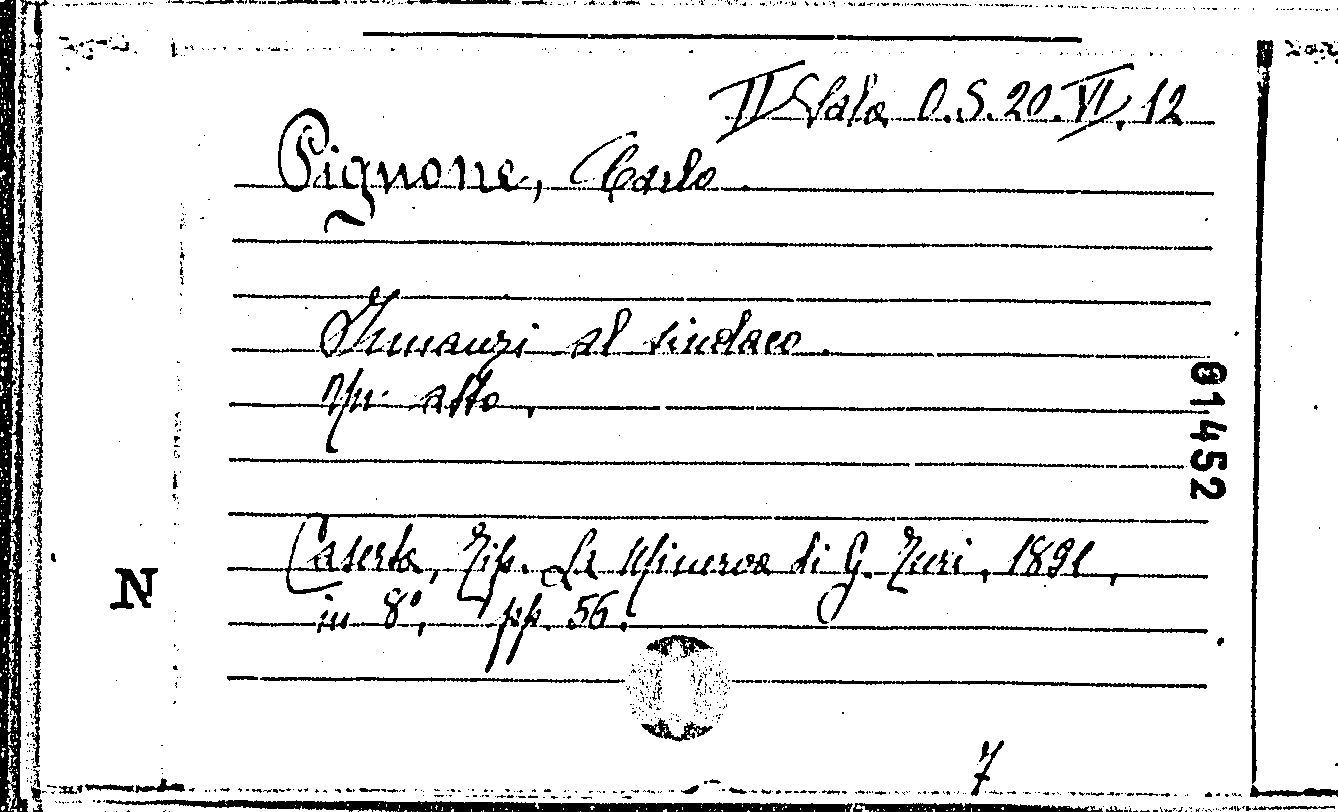 II Sala O.S. 20. VI. 12
Pignone, Carlo.
Innanzi al sindaco.
Un atto.
81452
Caserta, Tip. La Minerva di G. Turi, 1891,
N
in 8°, pp. 56.
7